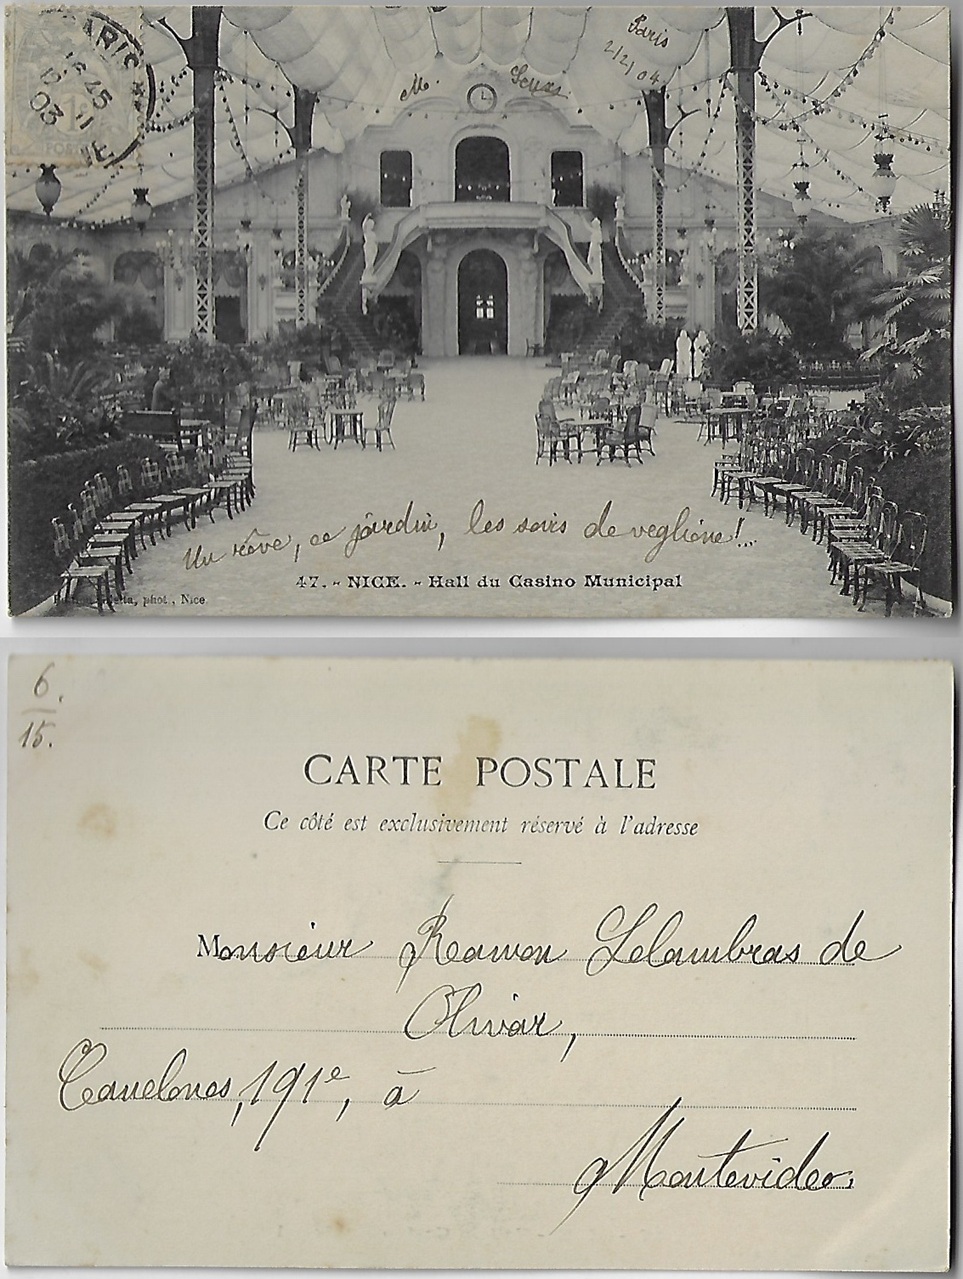 PARIS
16 45
11
03
POSTES
Paris
2/2/04
M.
Un rêve, ce jardin, les soirs de veglione!...
47. - NICE. - Hall du Casino Municipal
phot., Nice
6.
15.
CARTE POSTALE
Ce côté est exclusivement réservé à l'adresse
Monsieur Ramon Lelambras de
Olivar,
Canelones, 191e, à
Montevideo.